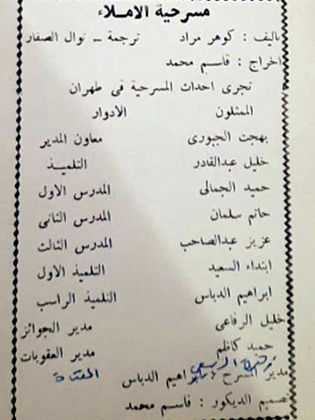 مسرحية الاملاء
تاليف : كوهر مراد ترجمة ــ نوال الصفار
اخراج : قاسم محمد
تجرى احداث المسرحية فى طهران
الممثلون الادوار
بهجت الجبورى معاون المدير
خليل عبدالقادر التلميذ
حميد الجمالى المدرس الاول
حاتم سلمان المدرس الثانى
عزيز عبدالصاحب المدرس الثالث
ابتداء السعيد التلميذ الاول
ابراهيم الدباس التلميذ الراسب
خليل الرفاعى مدير الجوائز
حميد كاظم مدير العقوبات
مدير المسرح ابراهيم الدباس
تصميم الديكور : قاسم محمد